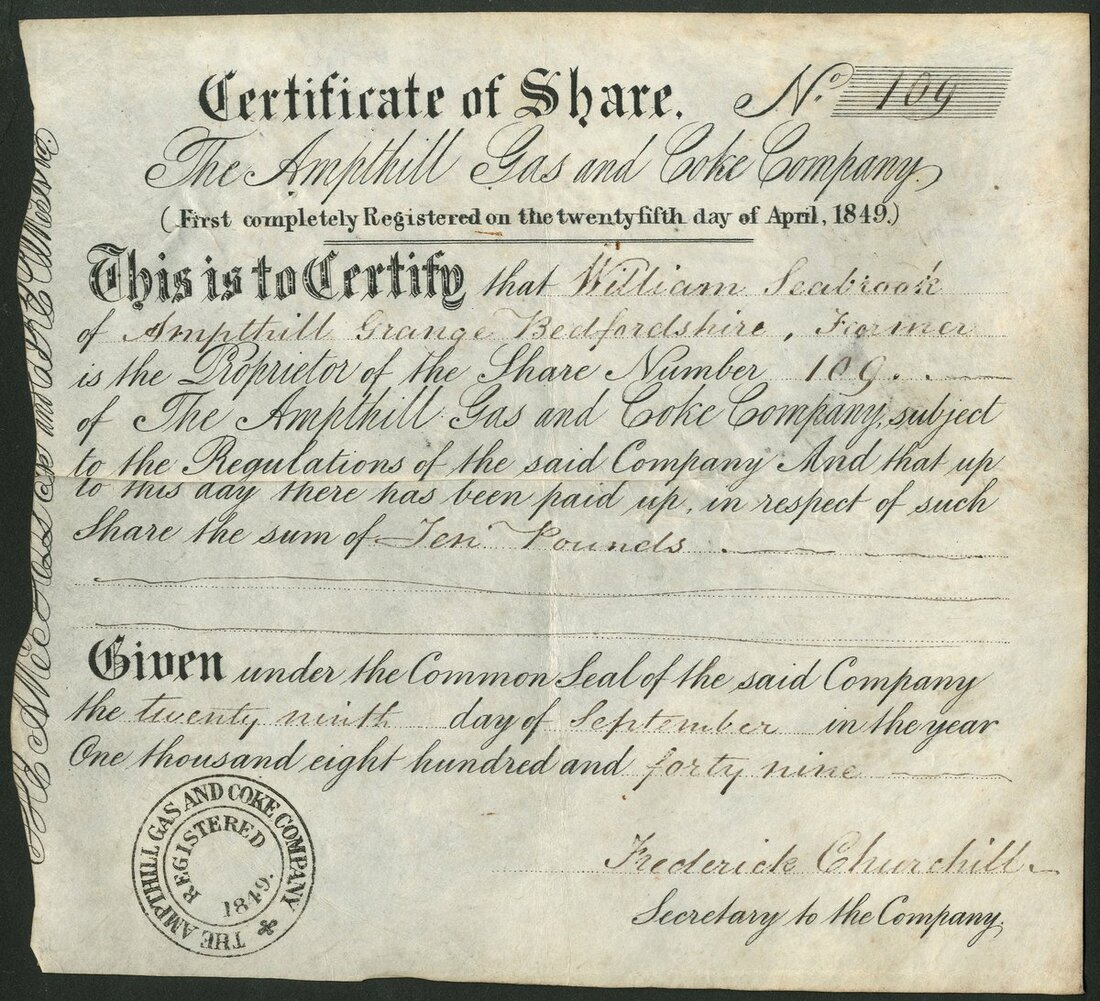 Certificate of Share. No. 109
The Ampthill Gas and Coke Company.
(First completely Registered on the twenty fifth day of April, 1849.)
This is to Certify that William Seabrook
of Ampthill Grange Bedfordshire, Farmer
is the Proprietor of the Share Number 109.
of The Ampthill Gas and Coke Company, subject
to the Regulations of the said Company And that up
to this day there has been paid up, in respect of such
Share the sum of Ten Pounds
Given under the Common Seal of the said Company
the twenty ninth day of September in the year
One thousand eight hundred and forty nine
Frederick Churchill
Secretary to the Company.
THE AMPTHILL GAS AND COKE COMPANY
REGISTERED
1849.